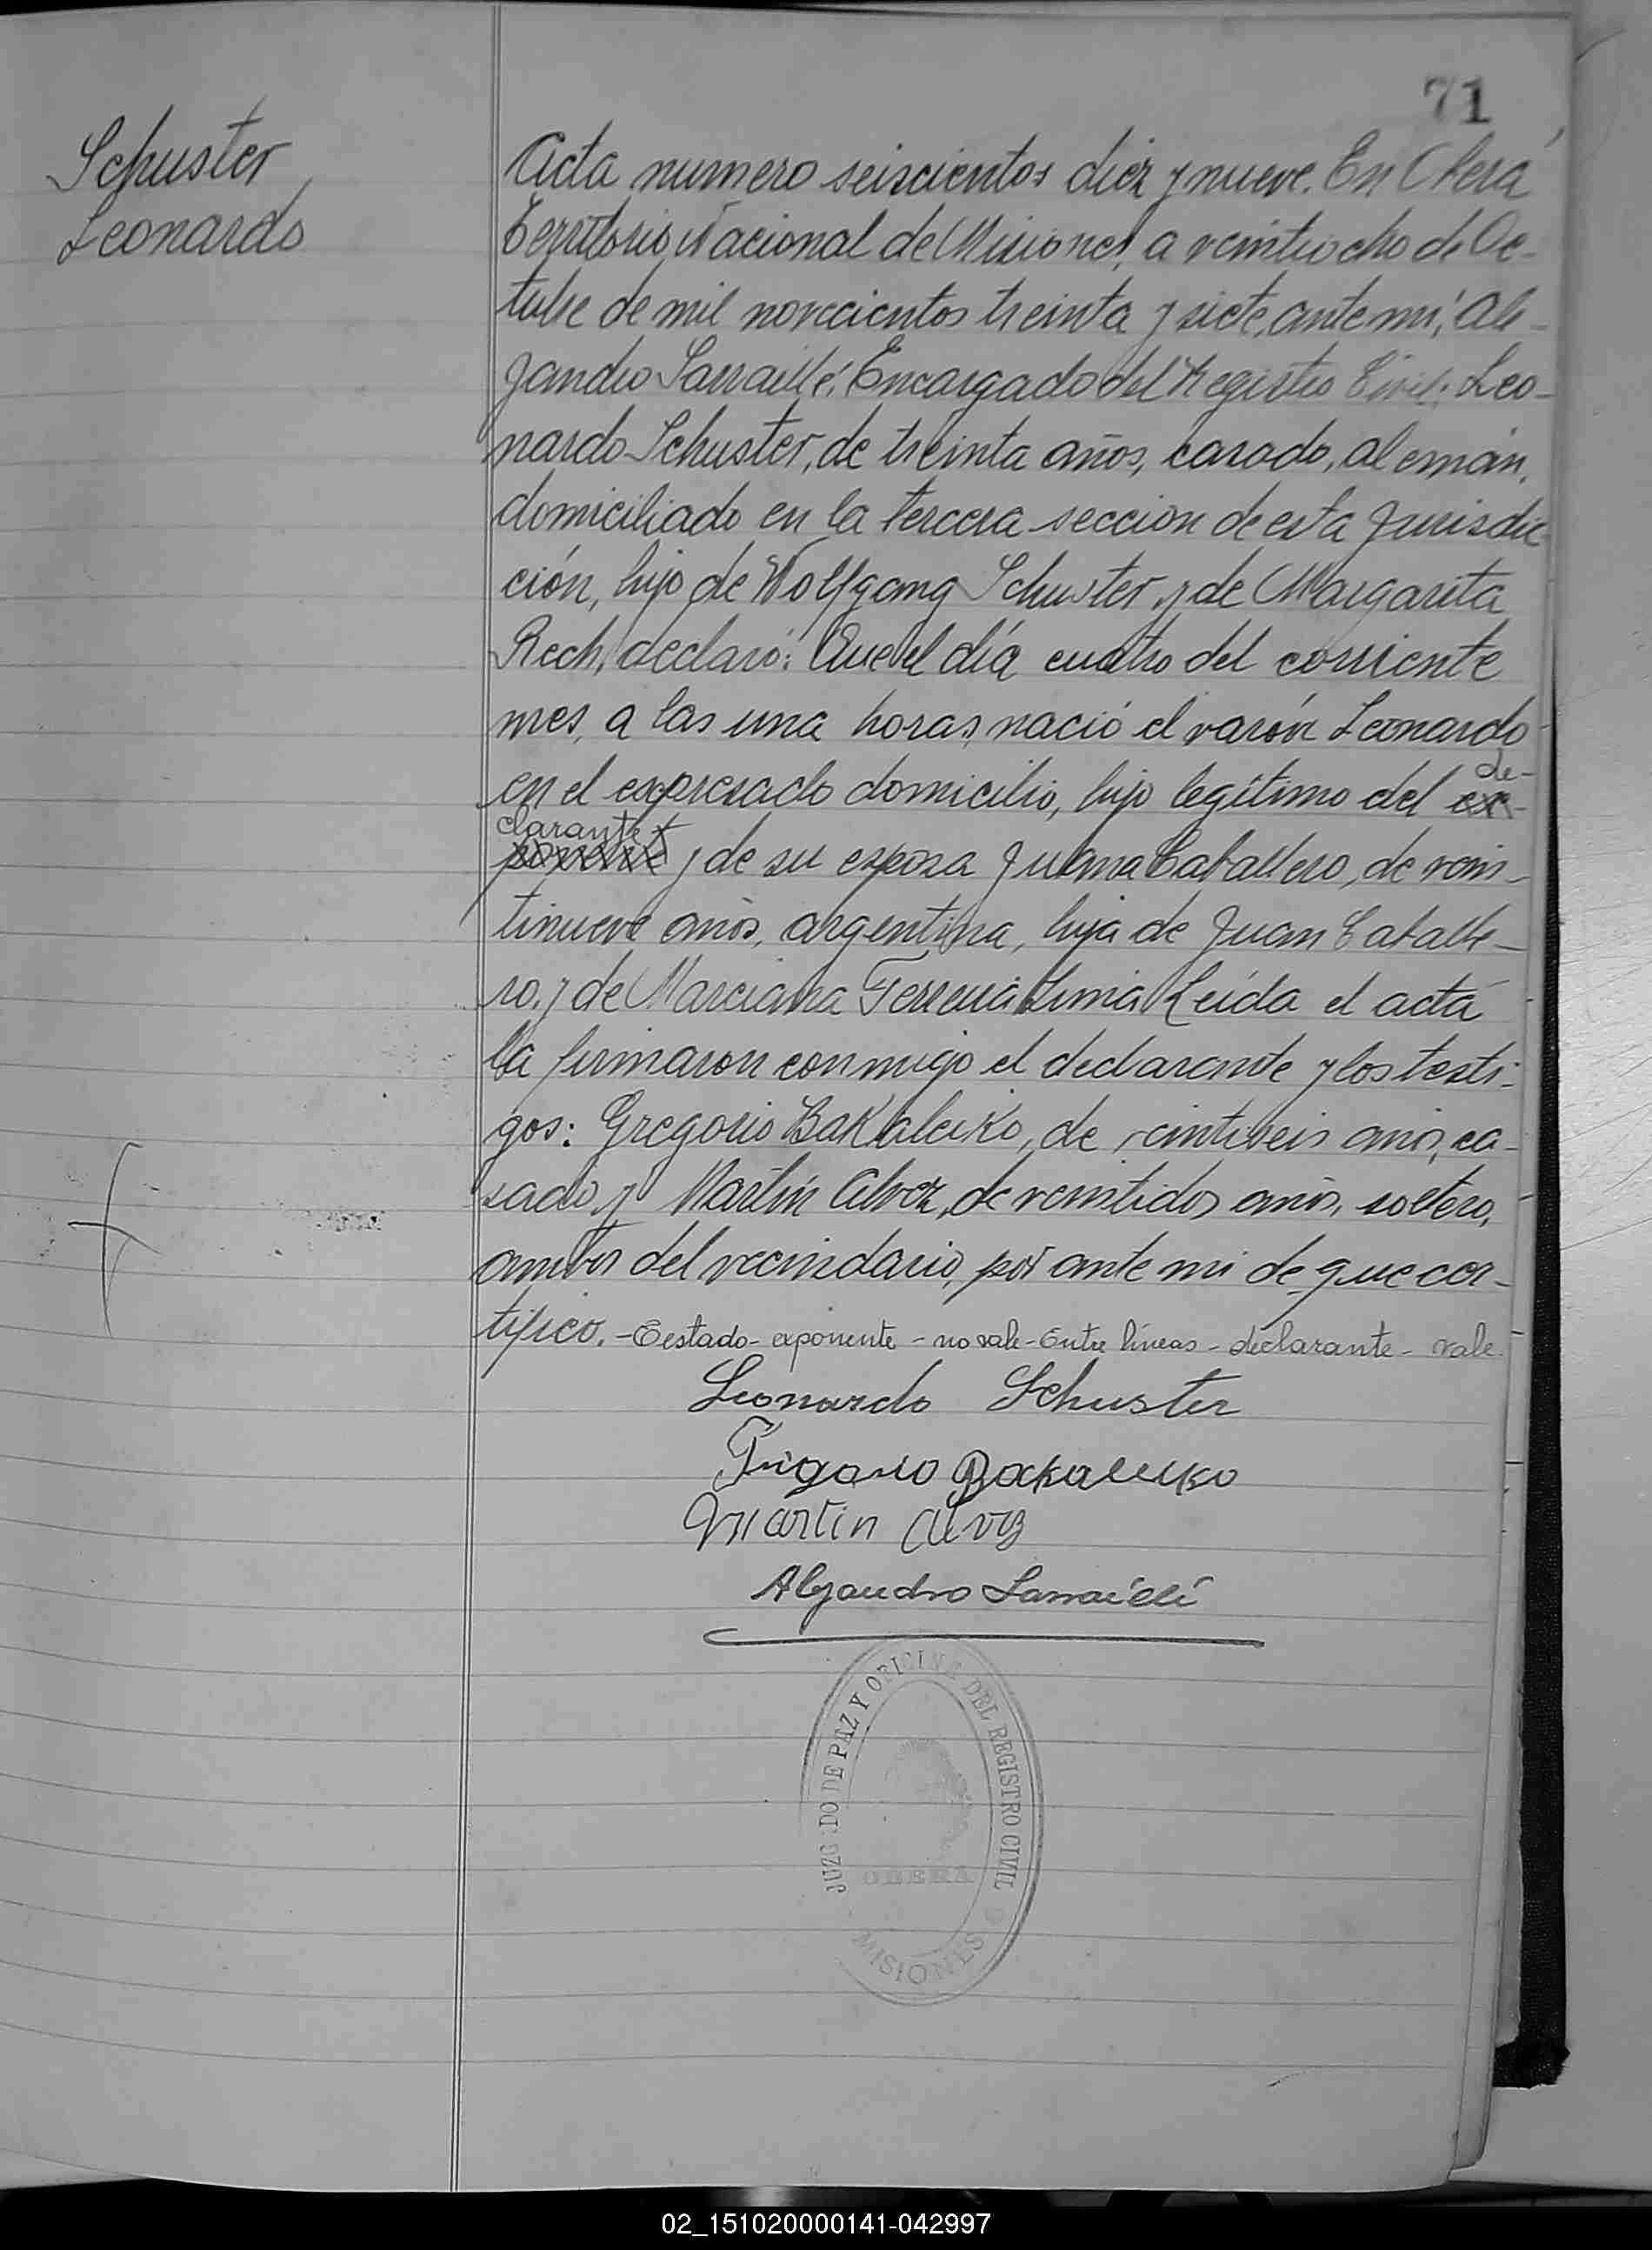 71
Schuster
Leonardo
Acta numero seiscientos diez y nueve. En Oberá
Territorio Nacional de Misiones, a veintiocho de Oc-
tubre de mil novecientos treinta y siete, ante mi, Ale-
jandro Sarraillé, Encargado del Registro Civil; Leo-
nardo Schuster, de treinta años, casado, alemán,
domiciliado en la tercera seccion de esta Jurisdic-
ción, hijo de Wolfgang Schuster y de Margarita
Rech, declaró: Que el día cuatro del corriente
mes, a las una horas, nació el varón Leonardo
en el expresado domicilio, hijo legítimo del ex-
de-
clarante
ponente y de su esposa Juana Caballero, de vein-
tinueve años, argentina, hija de Juan Caballe-
ro, y de Marciana Ferreira Lima Leída el acta
la firmaron conmigo el declarante y los testi-
gos: Gregorio Bakaleiko, de veintiseis años, ca-
sado, y Martín Alvez, de veintidos años, soltero,
ambos del vecindario, por ante mi de que cer-
tifico. - Testado - exponente - no vale - Entre líneas - declarante - vale.
Leonardo Schuster
Martin Alvez
Alejandro Sarraillé
JUZGADO DE PAZ Y OFICINA DEL REGISTRO CIVIL
OBERA
MISIONES
02_151020000141-042997